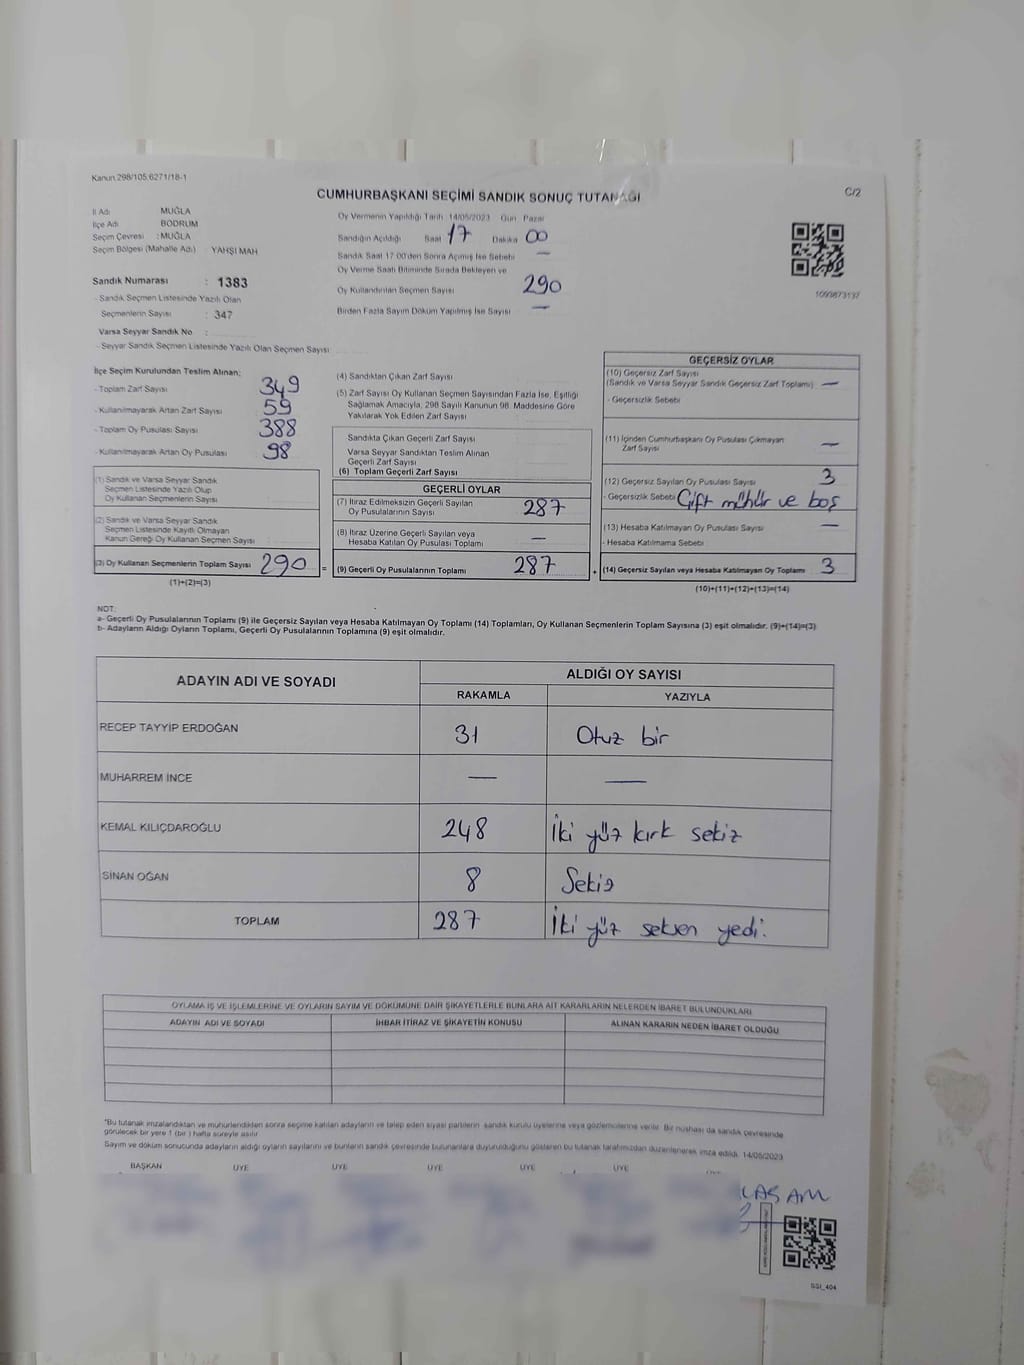 Kanun.298/105;6271/18-1
CUMHURBAŞKANI SEÇİMİ SANDIK SONUÇ TUTANAĞI
C/2
İl Adı MUĞLA
İlçe Adı BODRUM
Seçim Çevresi : MUĞLA
Seçim Bölgesi (Mahalle Adı) : YAHŞİ MAH
Sandık Numarası : 1383
- Sandık Seçmen Listesinde Yazılı Olan
Seçmenlerin Sayısı : 347
Varsa Seyyar Sandık No :
- Seyyar Sandık Seçmen Listesinde Yazılı Olan Seçmen Sayısı :
Oy Vermenin Yapıldığı Tarih 14/05/2023 Gün Pazar
Sandığın Açıldığı Saat 17 Dakika 00
Sandık Saat 17:00'den Sonra Açımış İse Sebebi —
Oy Verme Saati Bitiminde Sırada Bekleyen ve
Oy Kullandırılan Seçmen Sayısı 290
Birden Fazla Sayım Döküm Yapılmış İse Sayısı —
1099873137
İlçe Seçim Kurulundan Teslim Alınan;
- Toplam Zarf Sayısı 349
- Kullanılmayarak Artan Zarf Sayısı 59
- Toplam Oy Pusulası Sayısı 388
- Kullanılmayarak Artan Oy Pusulası 98
(1) Sandık ve Varsa Seyyar Sandık
Seçmen Listesinde Yazılı Olup
Oy Kullanan Seçmenlerin Sayısı
(2) Sandık ve Varsa Seyyar Sandık
Seçmen Listesinde Kayıtlı Olmayan
Kanun Gereği Oy Kullanan Seçmen Sayısı :
(3) Oy Kullanan Seçmenlerin Toplam Sayısı 290 =
(1)+(2)=(3)
(4) Sandıktan Çıkan Zarf Sayısı
(5) Zarf Sayısı Oy Kullanan Seçmen Sayısından Fazla İse, Eşitliği
Sağlamak Amacıyla, 298 Sayılı Kanunun 98. Maddesine Göre
Yakılarak Yok Edilen Zarf Sayısı
Sandıkta Çıkan Geçerli Zarf Sayısı
Varsa Seyyar Sandıktan Teslim Alınan
Geçerli Zarf Sayısı
(6) Toplam Geçerli Zarf Sayısı
GEÇERLİ OYLAR
(7) İtiraz Edilmeksizin Geçerli Sayılan
Oy Pusulalarının Sayısı 287
(8) İtiraz Üzerine Geçerli Sayılan veya
Hesaba Katılan Oy Pusulası Toplamı —
(9) Geçerli Oy Pusulalarının Toplamı 287 +
GEÇERSİZ OYLAR
(10) Geçersiz Zarf Sayısı
(Sandık ve Varsa Seyyar Sandık Geçersiz Zarf Toplamı) —
- Geçersizlik Sebebi
(11) İçinden Cumhurbaşkanı Oy Pusulası Çıkmayan
Zarf Sayısı —
(12) Geçersiz Sayılan Oy Pusulası Sayısı 3
- Geçersizlik Sebebi Çift mühür ve boş
(13) Hesaba Katılmayan Oy Pusulası Sayısı —
- Hesaba Katılmama Sebebi
(14) Geçersiz Sayılan veya Hesaba Katılmayan Oy Toplamı 3
(10)+(11)+(12)+(13)=(14)
NOT:
a- Geçerli Oy Pusulalarının Toplamı (9) ile Geçersiz Sayılan veya Hesaba Katılmayan Oy Toplamı (14) Toplamları, Oy Kullanan Seçmenlerin Toplam Sayısına (3) eşit olmalıdır. (9)+(14)=(3)
b- Adayların Aldığı Oyların Toplamı, Geçerli Oy Pusulalarının Toplamına (9) eşit olmalıdır.
ADAYIN ADI VE SOYADI ALDIĞI OY SAYISI
RAKAMLA YAZIYLA
RECEP TAYYİP ERDOĞAN 31 Otuz bir
MUHARREM İNCE — —
KEMAL KILIÇDAROĞLU 248 İki yüz kırk sekiz
SİNAN OĞAN 8 Sekiz
TOPLAM 287 İki yüz seksen yedi.
OYLAMA İŞ VE İŞLEMLERİNE VE OYLARIN SAYIM VE DÖKÜMÜNE DAİR ŞİKAYETLERLE BUNLARA AİT KARARLARIN NELERDEN İBARET BULUNDUKLARI
ADAYIN ADI VE SOYADI İHBAR İTİRAZ VE ŞİKAYETİN KONUSU ALINAN KARARIN NEDEN İBARET OLDUĞU
*Bu tutanak imzalandıktan ve mühürlendikten sonra seçime katılan adayların ve talep eden siyasi partilerin sandık kurulu üyelerine veya gözlemcilerine verilir. Bir nüshası da sandık çevresinde
görülecek bir yere 1 (bir ) hafta süreyle asılır.
Sayım ve döküm sonucunda adayların aldığı oyların sayılarını ve bunların sandık çevresinde bulunanlara duyurulduğunu gösteren bu tutanak tarafımızdan düzenlenerek imza edildi. 14/05/2023
BAŞKAN ÜYE ÜYE ÜYE ÜYE ÜYE ÜYE
SSI_404